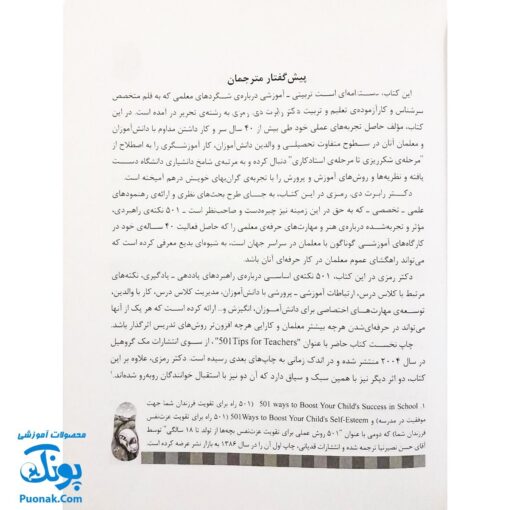 پیش‌گفتار مترجمان
این کتاب، نامه‌ای است تربیتی ـ آموزشی درباره‌ی شگردهای معلمی که به قلم متخصص
سرشناس و کارآزموده‌ی تعلیم و تربیت دکتر رابرت دی. رمزی به رشته‌ی تحریر در آمده است. در این
کتاب، مؤلف حاصل تجربه‌های عملی خود طی بیش از ۴۰ سال سر و کار داشتن مداوم با دانش‌آموزان
و معلمان آنان در سطوح متفاوت تحصیلی و والدین دانش‌آموزان، کار آموزشگری را به اصطلاح از
"مرحله‌ی شکرریزی تا مرحله‌ی استادکاری" دنبال کرده و به مرتبه‌ی شامخ دانشیاری دانشگاه دست
یافته و نظریه‌ها و روش‌های آموزش و پرورش را با تجربه‌ی گران‌بهای خویش در هم آمیخته است.
دکتر رابرت دی. رمزی در این کتاب، به جای طرح بحث‌های نظری و ارائه‌ی رهنمودهای
علمی ـ تخصصی ـ که به حق در این زمینه نیز چیره‌دست و صاحب‌نظر است ـ ۵۰۱ نکته‌ی راهبردی،
مؤثر و تجربه‌شده درباره‌ی هنر و مهارت‌های حرفه‌ی معلمی را که حاصل فعالیت ۴۰ ساله‌ی خود در
کارگاه‌های آموزشی گوناگون با معلمان در سراسر جهان است، به شیوه‌ای بدیع معرفی کرده است که
می‌تواند راهگشای عموم معلمان در کار حرفه‌ای آنان باشد.
دکتر رمزی در این کتاب، ۵۰۱ نکته‌ی اساسی درباره‌ی راهبردهای یاددهی ـ یادگیری، نکته‌های
مرتبط با کلاس درس، ارتباطات آموزشی ـ پرورشی با دانش‌آموزان، مدیریت کلاس درس، کار با والدین،
توسعه‌ی مهارت‌های اختصاصی برای دانش‌آموزان، انگیزش و.. ارائه کرده است که هر یک از آنها
می‌تواند در حرفه‌ای‌شدن هرچه بیشتر معلمان و کارایی هرچه افزون‌تر روش‌های تدریس اثرگذار باشد.
چاپ نخست کتاب حاضر با عنوان "501Tips for Teachers"، از سوی انتشارات مک گروهیل
در سال ۲۰۰۴ منتشر شده و در اندک زمانی به چاپ‌های بعدی رسیده است. دکتر رمزی، علاوه بر این
کتاب، دو اثر دیگر نیز با همین سبک و سیاق دارد که آن دو نیز با استقبال خوانندگان روبه‌رو شده‌اند.¹
۱. 501 ways to Boost Your Child's Success in School (۵۰۱ راه برای تقویت فرزندان شما جهت
موفقیت در مدرسه) و 501Ways to Boost Your Child's Self-Esteem (۵۰۱ راه برای تقویت عزت‌نفس
فرزندان شما) که دومی با عنوان "۵۰۱ روش عملی برای تقویت عزت‌نفس بچه‌ها از تولد تا ۱۸ سالگی" توسط
آقای حسن نصیرنیا ترجمه شده و انتشارات قدیانی، چاپ اول آن را در سال ۱۳۸۶ به بازار نشر عرضه کرده است.
محصولات آموزشی
پونک
Puonak.Com